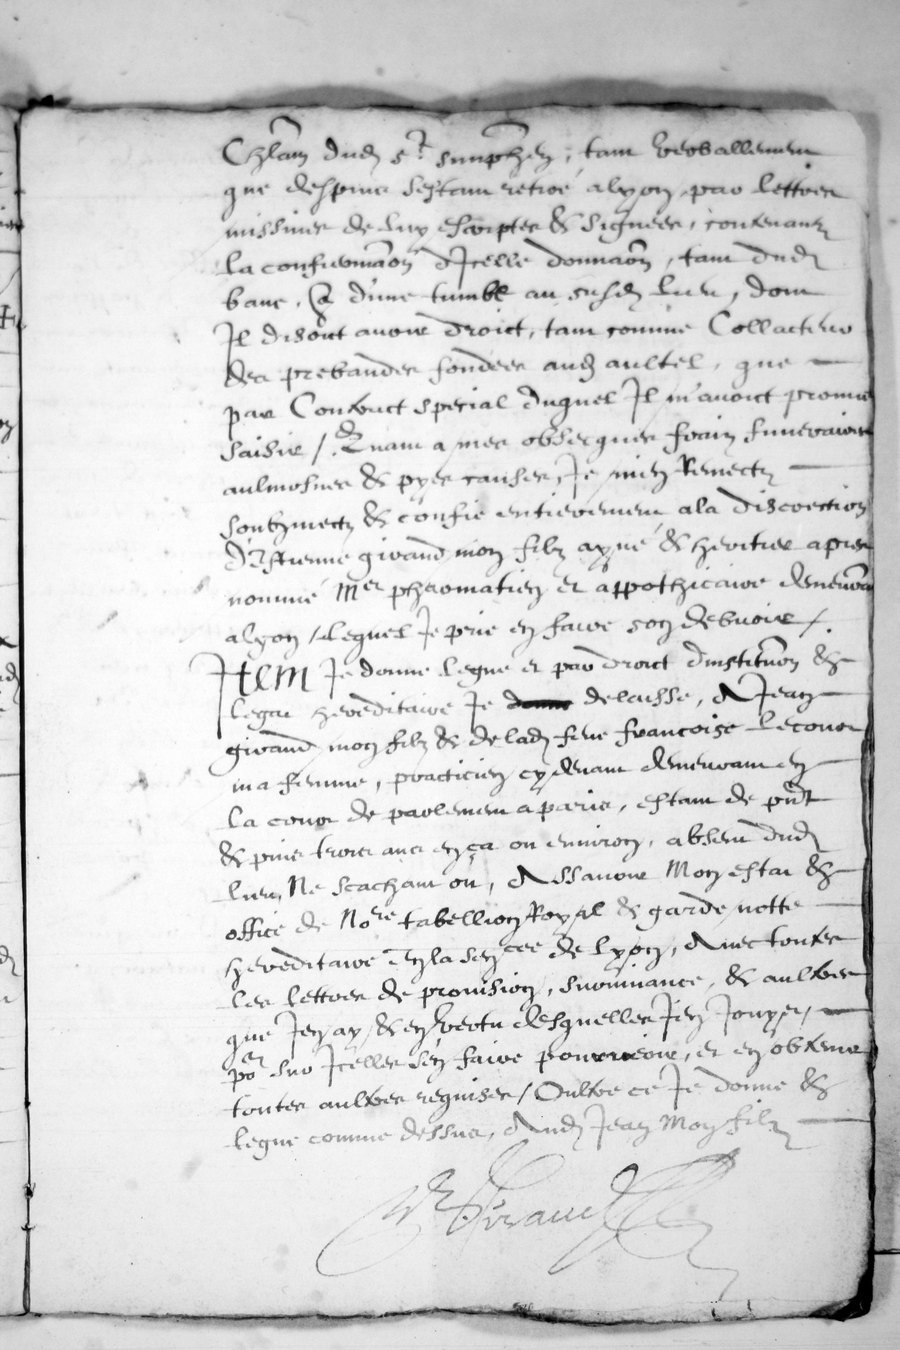 Chlān dud sr simphen, tant verballement
que despuis estant retiré a lyon, par lettres
missives de luy escriptes & signées, contenantz
la confirmaōn d'Icelle donnaōn, tant dud
banc, & d'une tumbe au susd lieu, dont
Il disoit avoir droict, tant comme Collacteur
des prebandes fondées aud aultel, que
par Contract special duquel Il m'avoict promis
saisir / Quant a mes obseques frais funeraires
aulmosnes & pyes causes, Je m'en Remectz
soubzmectz & confie entierement a la discrection
d'Estienne giraud mon filz ayné & heritier apres
nommé Mer pharmatien et appothicaire demeurāt
a lyon / lequel Je prie en faire son debvoir /.
Item Je donne legue et par droict d'institūon &
legat hereditaire Je delaisse, A Jean
giraud mon filz & de lad feue francoise Lecourt
ma femme, practicien cydevant demeurant en
la cour de parlement a paris, estant de pnt
& puis trois ans ença ou environ, absent dud
lieu, Ne scachant ou, Assavoir Mon estat &
office de Nore tabellion Royal & garde notte
hereditaire En la sencée de lyon, Avec toutes
les lettres de provision, survivance, & aultres
que J'en ay & en vertu desquelles J'en Jouys,
pōr sur Icelles s'en faire pourveoir, et en obtenir
toutes aultres requises / Oultre ce Je donne &
legue comme dessus, Aud Jean Mon filz
Giraud